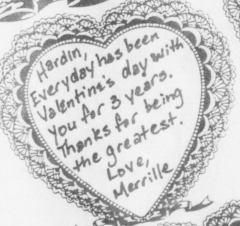 Hardin,
Everyday has been
Valentine's day with
you for 3 years.
Thanks for being
the greatest.
Love,
Merrille